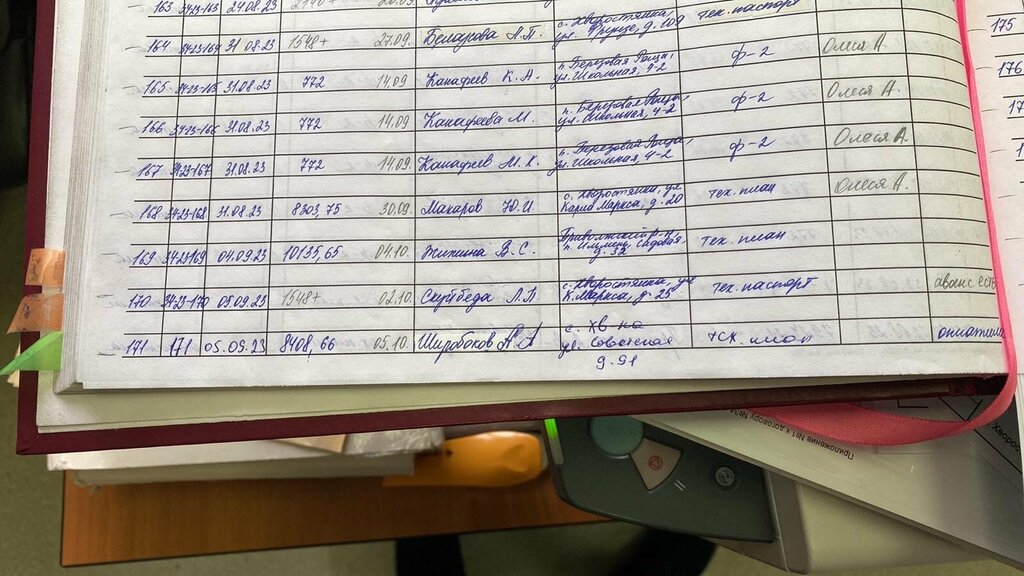 163 3423-163 24.08.23
с. Хворостянка, тех. паспорт
164 3423-164 31.08.23 1548+ 27.09. Беларова А.П. ул. Фрунзе, д. 109
165 3423-165 31.08.23 772 14.09 Канафеев К.А. п. Березовая Роща, ул. Школьная, 4-2 ф-2 Олеся А.
166 3423-166 31.08.23 772 14.09 Канафеева М. п. Березовая Роща, ул. Школьная, 4-2 ф-2 Олеся А.
167 3423-167 31.08.23 772 14.09 Канафеев М.К. п. Березовая Роща, ул. Школьная, 4-2 ф-2 Олеся А.
168 3423-168 31.08.23 8303,75 30.09. Макаров Ю.И. с. Хворостянка, ул. Карла Маркса, д. 20 тех. план Олеся А.
169 3423-169 04.09.23 10135,65 04.10. Жикина В.С. Приволжский р-н, п. Ильмень, Садовая д. 32 тех. план
170 3423-170 05.09.23 1548+ 02.10. Скубеда Л.П. с. Хворостянка, ул К.Маркса, д. 25 тех. паспорт аванс есть
171 171 05.09.23 8408,66 05.10. Широбоков А.А с. Хв-ка ул. Советская д. 91 тех. план оплатили
175
176
Приложение №1 к договору №